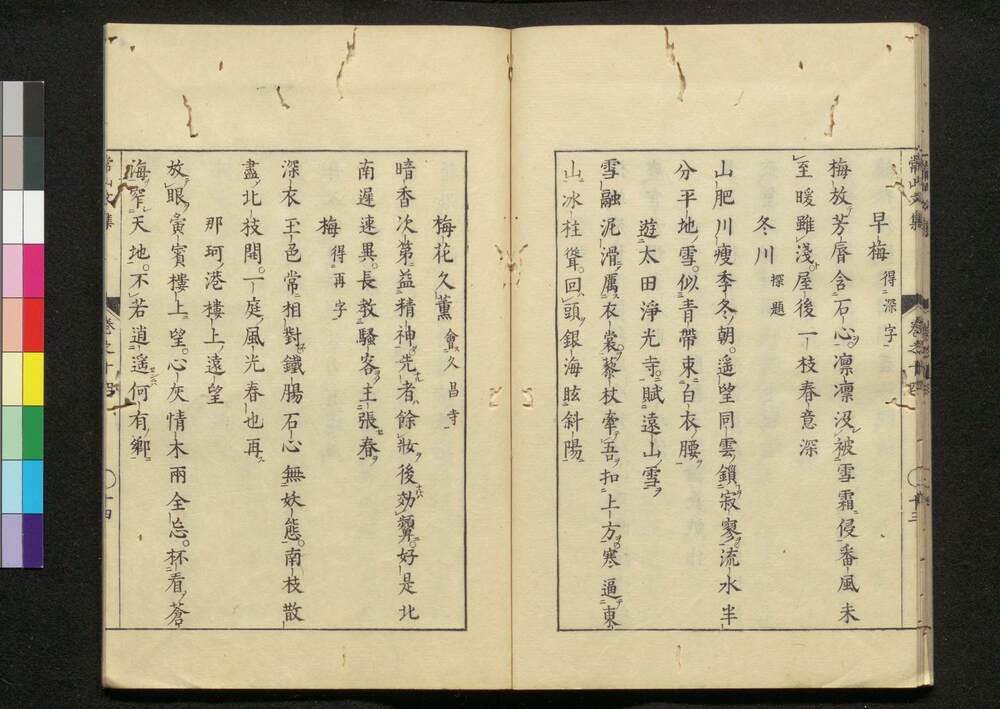 早梅 得深字
梅放芳脣含石心。凛凛沒被雪霜侵番風未
至暖雖淺。屋後一枝春意深
冬川 探題
山肥川瘦季冬朝。遙望同雲鎖寂寥。流水半
分平地雪。似青帶束白衣腰
遊太田淨光寺。賦遠山雪
雪融泥滑厲衣裳。藜杖牽吾扣上方。寒逼東
山冰柱聳。回頭銀海眩斜陽
常山文集 卷之十四 十三
梅花久薰 會久昌寺
暗香次第益精神。先者餘妝後効顰。好是北
南遲速異。長教騷客主張春
梅 得再字
深衣玉色常相對。鐵腸石心無妖態。南枝散
盡北枝開。一庭風光春也再
那珂港樓上遠望
放眼寅賓樓上望。心灰情木兩全忘。杯看蒼
海窄天地。不若逍遙何有鄉
常山文集 卷之十四 十四